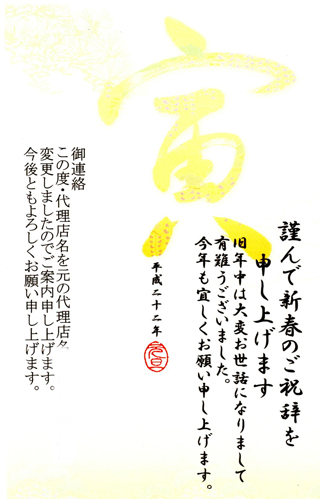 寅
謹んで新春のご祝辞を
申し上げます
旧年中は大変お世話になりまして
有難うございました。
今年も宜しくお願い申し上げます。
平成二十二年
元旦
御連絡
この度・代理店名を元の代理店名
変更しましたのでご案内申し上げます。
今後ともよろしくお願い申し上げます。